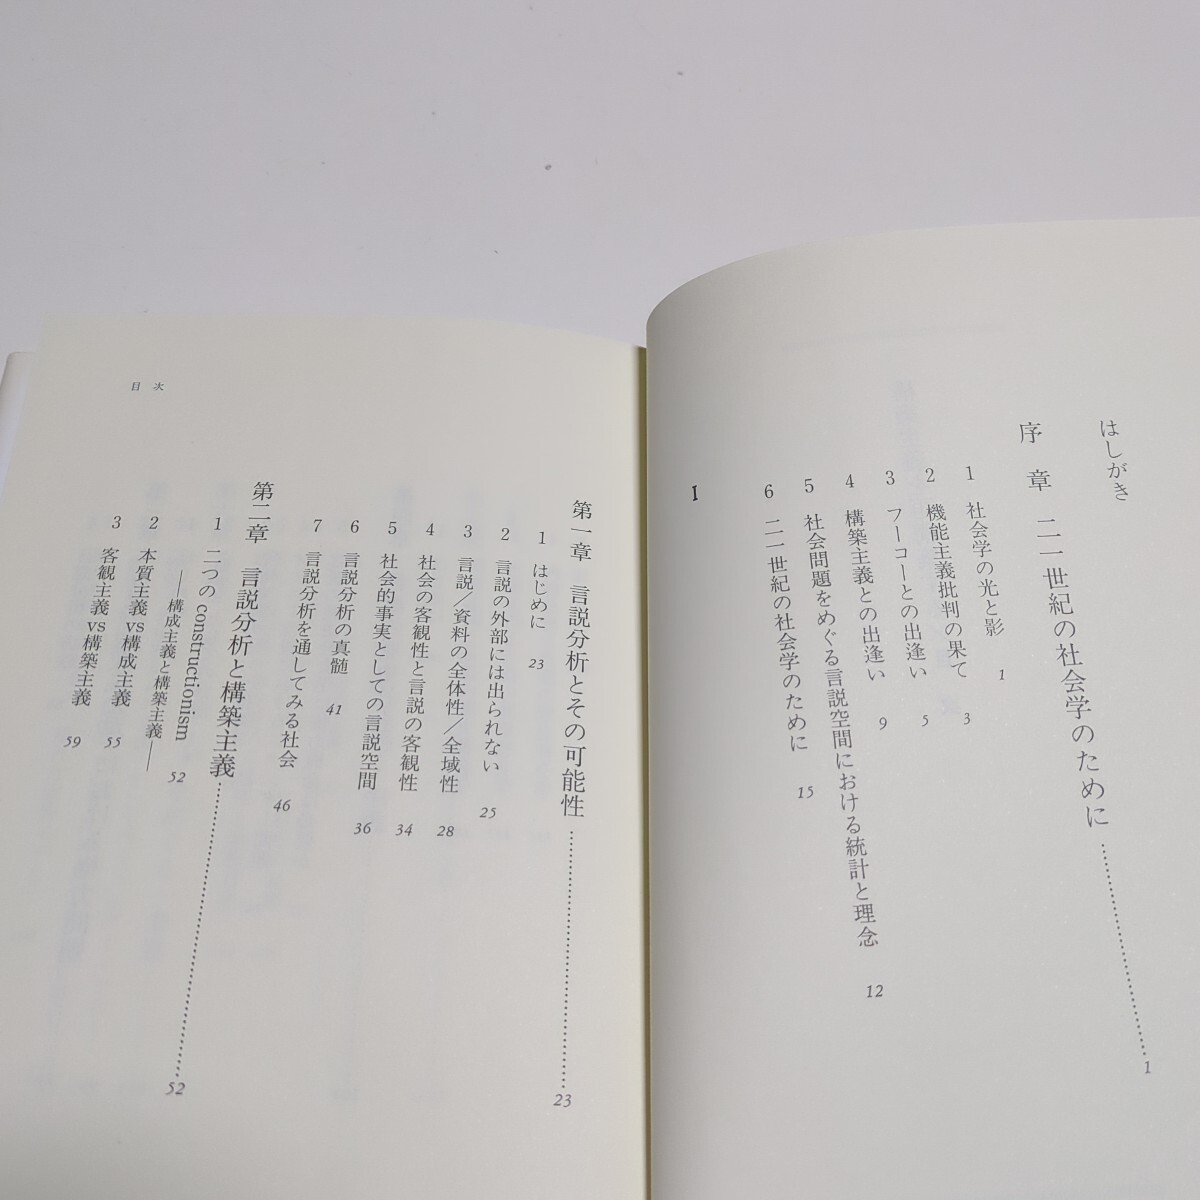 はしがき
序章 二一世紀の社会学のために 1
1 社会学の光と影 1
2 機能主義批判の果て 3
3 フーコーとの出逢い 5
4 構築主義との出逢い 9
5 社会問題をめぐる言説空間における統計と理念 12
6 二一世紀の社会学のために 15
I
第一章 言説分析とその可能性 23
1 はじめに 23
2 言説の外部には出られない 25
3 言説/資料の全体性/全域性 28
4 社会の客観性と言説の客観性 34
5 社会的事実としての言説空間 36
6 言説分析の真髄 41
7 言説分析を通してみる社会 46
第二章 言説分析と構築主義 52
1 二つの constructionism
――構成主義と構築主義―― 52
2 本質主義 vs 構成主義 55
3 客観主義 vs 構築主義 59
目次